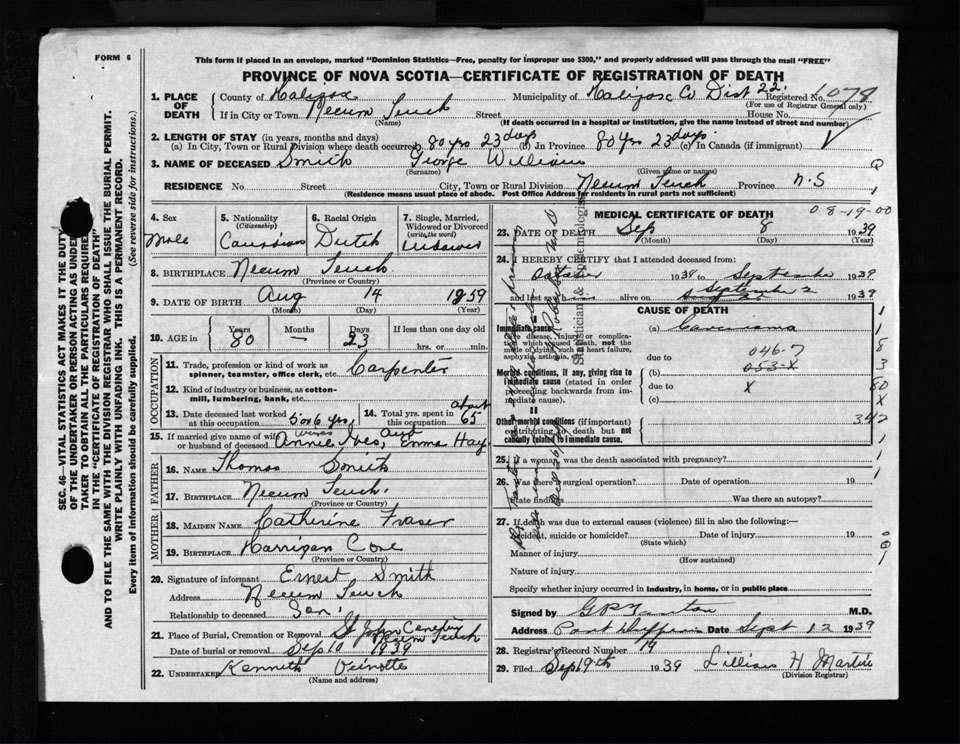 FORM 6
This form if placed in an envelope, marked "Dominion Statistics—Free, penalty for improper use $300," and properly addressed will pass through the mail "FREE"
PROVINCE OF NOVA SCOTIA—CERTIFICATE OF REGISTRATION OF DEATH
1. PLACE OF DEATH County of Halifax Municipality of Halifax Co Dist 22. Registered No. 1078
(For use of Registrar General only)
If in City or Town Necum Teuch Street House No.
(Name) (If death occurred in a hospital or institution, give the name instead of street and number)
2. LENGTH OF STAY (in years, months and days)
(a) In City, Town or Rural Division where death occurred 80 yrs 23 days (b) In Province 80 yrs 23 days (c) In Canada (if immigrant)
3. NAME OF DECEASED Smith George William
(Surname) (Given name or names)
RESIDENCE No. Street City, Town or Rural Division Necum Teuch Province N.S
(Residence means usual place of abode. Post Office Address for residents in rural parts not sufficient)
4. Sex Male
5. Nationality (Citizenship) Canadian
6. Racial Origin Dutch
7. Single, Married, Widowed or Divorced (write the word) Widower
8. BIRTHPLACE Necum Teuch.
(Province or Country)
9. DATE OF BIRTH Aug 14 1859
(Month) (Day) (Year)
10. AGE in Years 80 Months — Days 23 If less than one day old
hrs. or min.
OCCUPATION
11. Trade, profession or kind of work as spinner, teamster, office clerk, etc. Carpenter
12. Kind of industry or business, as cotton-mill, lumbering, bank, etc.
13. Date deceased last worked at this occupation 5 or 6 yrs
14. Total yrs. spent in this occupation about 65
15. If married give name of wife or husband of deceased wives Annie Ives, and Emma Hay
FATHER
16. NAME Thomas Smith
17. BIRTHPLACE Necum Teuch.
(Province or Country)
MOTHER
18. MAIDEN NAME Catherine Fraser
19. BIRTHPLACE Harrigan Cove
(Province or Country)
20. Signature of informant Ernest Smith
Address Necum Teuch
Relationship to deceased Son.
21. Place of Burial, Cremation or Removal St John Necum Teuch
Date of burial or removal Sep 10 1939
22. UNDERTAKER Kennith
(Name and address)
MEDICAL CERTIFICATE OF DEATH 08-19-00
23. DATE OF DEATH Sep 8 1939
(Month) (Day) (Year)
24. I HEREBY CERTIFY that I attended deceased from:
October 1934 to September 1939
and last saw alive on September 2 1939
CAUSE OF DEATH
I
Immediate cause (a) Carcinoma
Give disease, injury or complication which caused death, not the mode of dying, such as heart failure, asphyxia, asthenia, etc.
due to 046.7
Morbid conditions, if any, giving rise to immediate cause (stated in order proceeding backwards from immediate cause). (b) 053-X
due to X
(c)
II
Other morbid conditions (if important) contributing to death but not causally related to immediate cause. 342
25. If a woman, was the death associated with pregnancy?
26. Was there a surgical operation? Date of operation 19
State findings Was there an autopsy?
27. If death was due to external causes (violence) fill in also the following:—
Accident, suicide or homicide? Date of injury 19
(State which)
Manner of injury
(How sustained)
Nature of injury
Specify whether injury occurred in industry, in home, or in public place
Signed by M.D.
Address Port Dufferin Date Sept 12 1939
28. Registrar's Record Number 19
29. Filed Sep 19th 1939 Lillian H Martin
(Division Registrar)
SEC. 46—VITAL STATISTICS ACT MAKES IT THE DUTY
OF THE UNDERTAKER OR PERSON ACTING AS UNDER-
TAKER TO OBTAIN ALL THE PARTICULARS REQUIRED
IN THE "CERTIFICATE OF REGISTRATION OF DEATH"
AND TO FILE THE SAME WITH THE DIVISION REGISTRAR WHO SHALL ISSUE THE BURIAL PERMIT.
WRITE PLAINLY WITH UNFADING INK. THIS IS A PERMANENT RECORD.
Every item of Information should be carefully supplied. (See reverse side for instructions.)
Statistician & Epidemiologist